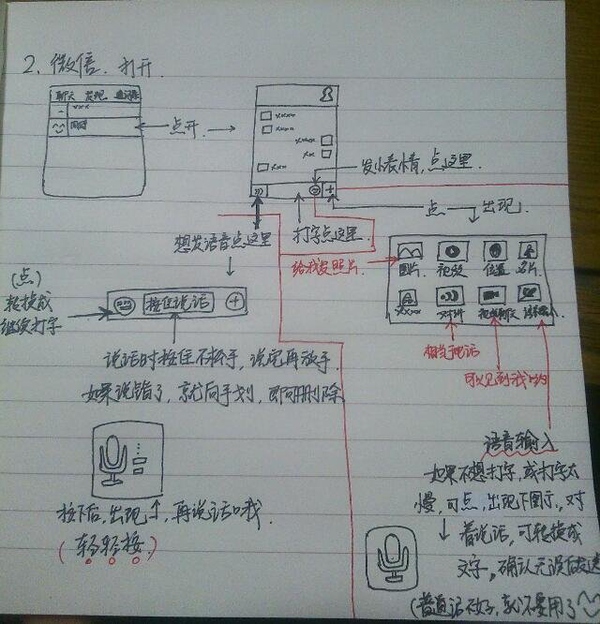 2、微信、打开.
聊天 发现 通讯录
xxx
点开
xxxx
xxxx
xxxx
xx
xxx
发小表情,点这里.
想发语音点这里
打字点这里.
点 出现
给我发照片.
图片 视频 位置 名片.
xxxx 对讲
相当于电话
(点)
转换成
继续打字
按住说话
说话时按住不松手,说完再放手.
如果说错了,就向手划,即可删除
按下后,出现↑,再说话哦.
(轻轻按)
语音输入
如果不想打字,或打字太
慢,可点,出现下图示,对
着说话,可转换成
文字,确认无误后发送
(普通话不好,就不要用了